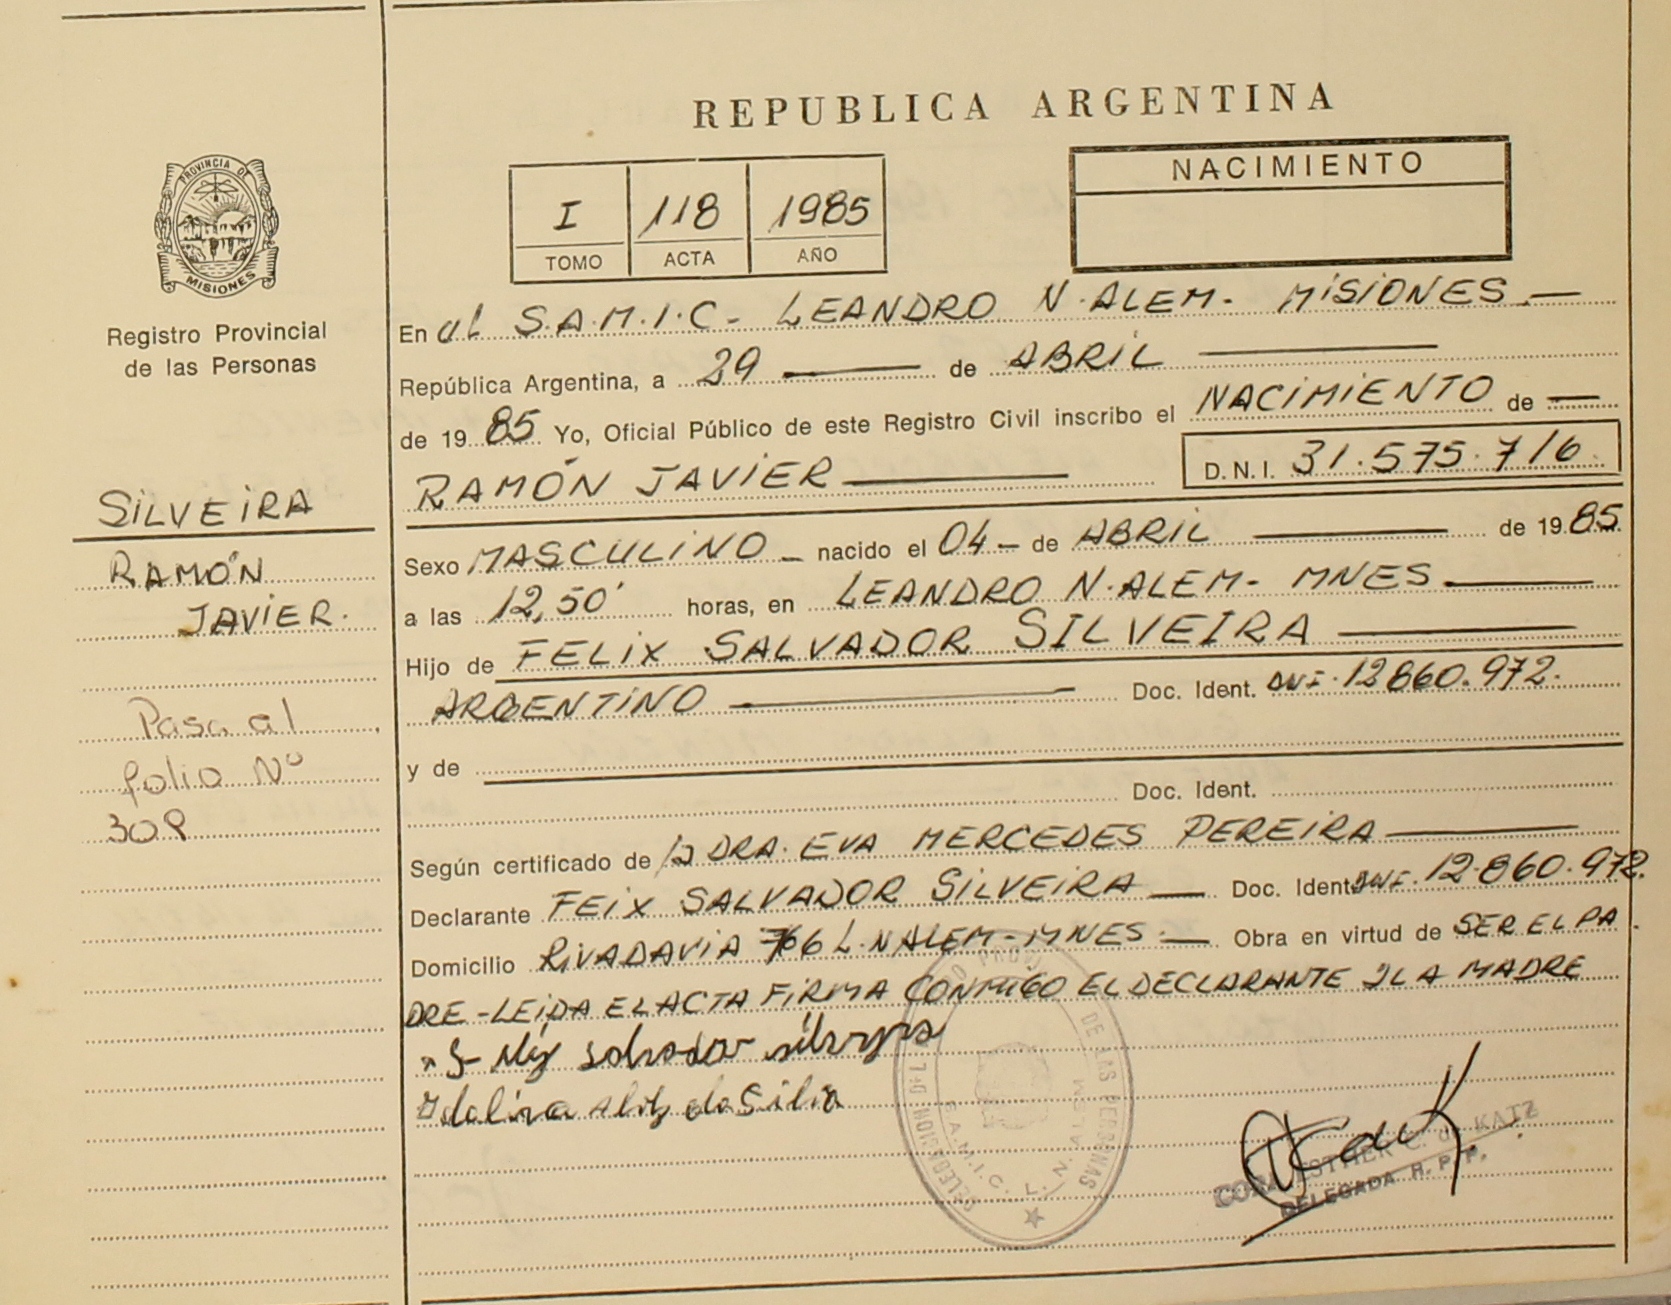 REPUBLICA ARGENTINA
PROVINCIA DE
MISIONES
Registro Provincial
de las Personas
SILVEIRA
RAMÓN
JAVIER.
Pasa al
folio Nº
I 118 1985
TOMO ACTA AÑO
NACIMIENTO
En el S.A.M.I.C- LEANDRO N.ALEM- MISIONES.—
República Argentina, a 29 — de ABRIL —
de 19 85 Yo, Oficial Público de este Registro Civil inscribo el NACIMIENTO de —
RAMÓN JAVIER — D.N.I. 31.575.716
Sexo MASCULINO — nacido el 04 — de ABRIL — de 19 85
a las 12,50' horas, en LEANDRO N.ALEM- MNES —
Hijo de FELIX SALVADOR SILVEIRA —
ARGENTINO — Doc. Ident. DNI. 12860.972.
y de —
Doc. Ident.
Según certificado de la DRA. EVA MERCEDES PEREIRA —
Declarante FEIX SALVADOR SILVEIRA — Doc. Ident. DNI. 12.860.972.
Domicilio RIVADAVIA 766 L.NALEM-MNES.— Obra en virtud de SER EL PA
DRE-LEIDA EL ACTA FIRMA CONMIGO EL DECLARANTE Y LA MADRE
salvador
DELEGACION
DE LAS PERSONAS
S.A.M.I.C. L. N. ALEM
ESTHER C. de KATZ
DELEGADA R. P. P.